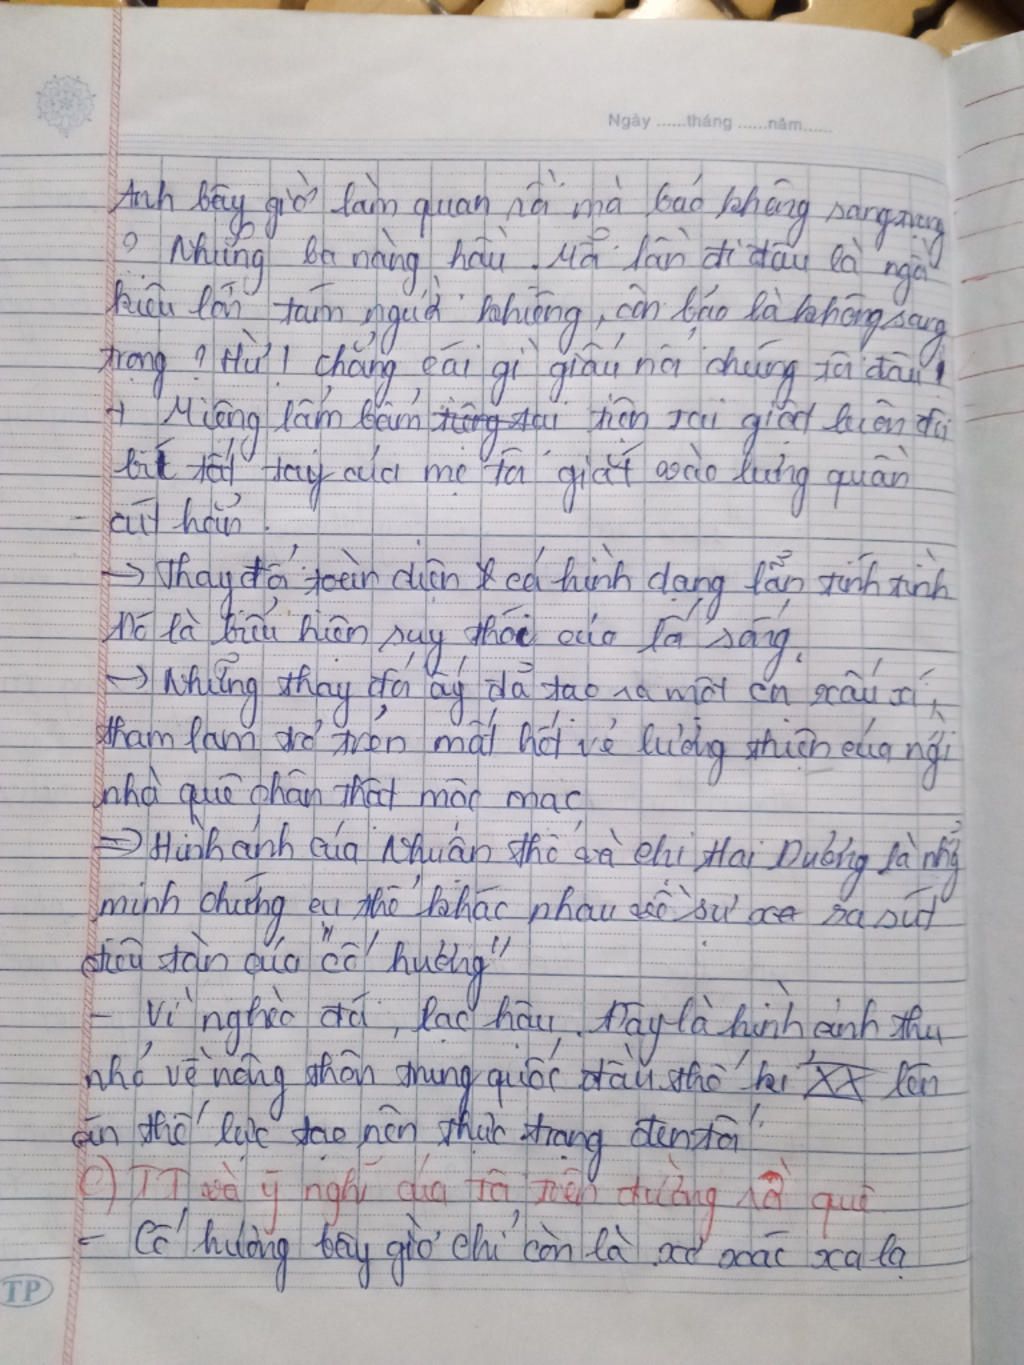 Ngày ......tháng ......năm......
Anh bây giờ làm quan rồi mà bảo không sang trọng
? Những ba nàng hầu. Mỗi lần đi đâu là ngồi
kiệu lớn tám người khiêng, còn bảo là không sang
trọng? Hừ! Chẳng cái gì giấu nổi chúng tôi đâu!
+ Miệng lẩm bẩm tiện tai giật luôn đôi
bít tất tay của mẹ tôi giắt vào lưng quần
cút hẳn.
-> Thay đổi toàn diện cả hình dạng lẫn tính tình
Đó là biểu hiện suy thoái của lối sống.
-> Những thay đổi ấy đã tạo ra một cn xấu xí,
tham lam trơ trẽn mất hết vẻ lương thiện của ng
nhà quê chân thật mộc mạc
=> Hình ảnh của Nhuận Thổ và chị Hai Dương là nhg
minh chứng cụ thể khác nhau về sự xa sút
tiêu tàn của "cố hương"
- Vì nghèo đói, lạc hậu. Đây là hình ảnh thu
nhỏ về nông thôn trung quốc đầu thế kỉ XX lên
án thế lực tạo nên thực trạng đen tối
c) TT và ý nghĩ của tôi trên đường rời quê
- Cố hương bây giờ chỉ còn là xơ xác xa lạ
TP